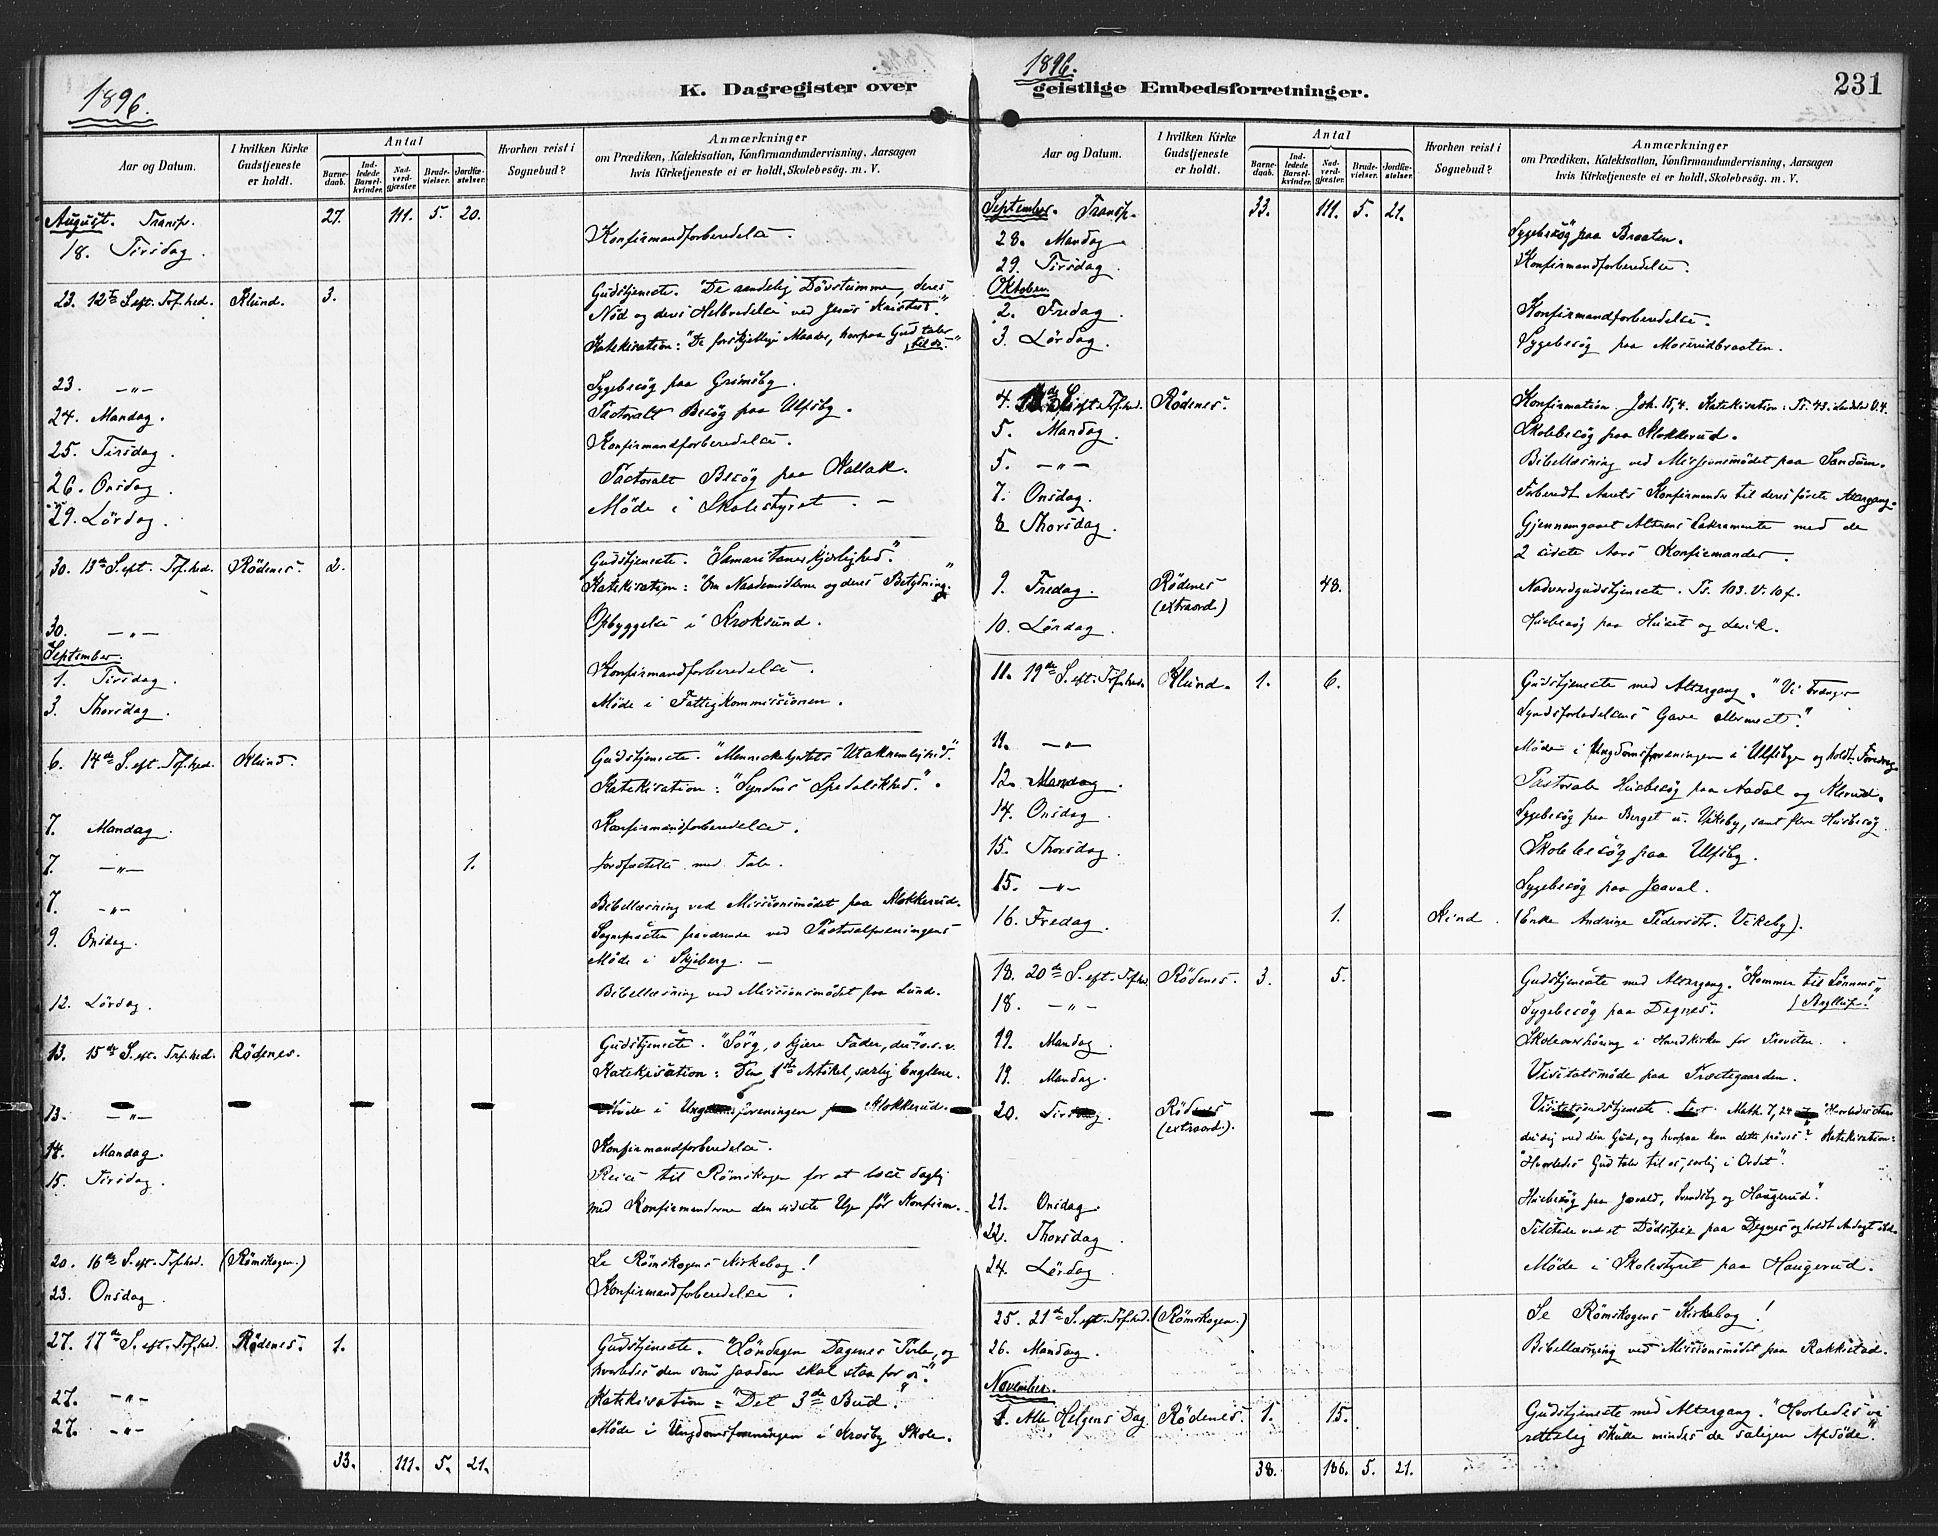 1896.
K. Dagregister over
Aar og Datum.
I hvilken Kirke Gudstjeneste er holdt.
Antal
Barne-daab.
Ind-ledede Barsel-kvinder.
Nad-verd-gjæster.
Brude-vielser.
Jordfæ-stelser.
Hvorhen reist i Sognebud?
Anmærkninger
om Prædiken, Katekisation, Konfirmandundervisning, Aarsagen
hvis Kirketjeneste ei er holdt, Skolebesøg. m. V.
August. Transp. 27. 111. 5. 20.
18. Tirsdag. Konfirmandforberedelse.
23. 12te S. eft. Tref.hed. Klund. 3. Gudstjeneste. "De aandelig Døvstumme, deres
Nød og deres Helbredelse ved Jesus Kristus."
Katekisation: "De forskjellige Maader, hvorpaa Gud taler
til os."
23. —"— Sygebesøg paa Grimsby.
24. Mandag. Pastoralt Besøg paa Ulfsby.
25. Tirsdag. Konfirmandforberedelse.
26. Onsdag. Pastoralt Besøg paa Kallak.
29. Lørdag. Møde i Skolestyret. —
30. 13de S. eft. Tref.hed. Rødenes. 2. Gudstjeneste. "Samaritanerkjærlighed".
Katekisation: "Om Naademidlerne og deres Betydning."
30. —"— Opbyggelse i Kroksund.
September.
1. Tirsdag. Konfirmandforberedelse.
3. Thorsdag. Møde i Fattigkommissionen.
6. 14de S. eft. Tref.hed. Klund. Gudstjeneste. "Menneskehjertets Utaknemlighed".
Katekisation: "Syndens Spedalskhed."
7. Mandag. Konfirmandforberedelse.
7. —"— 1. Jordfæstelse med Tale.
7. —"— Bibellæsning ved Missionsmødet paa Klokkerud.
9. Onsdag. Sognepræsten fraværende ved Pastoralforeningens
Møde i Skjeberg. —
12. Lørdag. Bibellæsning ved Missionsmødet paa Lund.
13. 15de S. eft. Tref.hed. Rødenes. Gudstjeneste. "Sørg, o kjære Fader, du" o. s. v.
Katekisation: Den 1ste Artikel, særlig Englene.
13. —"— Møde i Ungdomsforeningen paa Klokkerud.
14. Mandag. Konfirmandforberedelse.
15. Tirsdag. Reise til Rømskogen for at læse daglig
med Konfirmanderne den sidste Uge før Konfirm.
20. 16de S. eft. Tref.hed. (Rømskogen.) Se Rømskogens Kirkebog!
23. Onsdag. Konfirmandforberedelse.
27. 17de S. eft. Tref.hed. Rødenes. 1. Gudstjeneste. "Søndagen Dagenes Perle, og
hvorledes den som saadan skal staa for os."
27. —"— Katekisation: "Det 3de Bud."
27. —"— Møde i Ungdomsforeningen i Krosby Skole.
33. 111. 5. 21.
1896.
geistlige Embedsforretninger.
231
Aar og Datum.
I hvilken Kirke Gudstjeneste er holdt.
Antal
Barne-daab.
Ind-ledede Barsel-kvinder.
Nad-verd-gjæster.
Brude-vielser.
Jordfæ-stelser.
Hvorhen reist i Sognebud?
Anmærkninger
om Prædiken, Katekisation, Konfirmandundervisning, Aarsagen
hvis Kirketjeneste ei er holdt, Skolebesøg. m. V.
September. Transp. 33. 111. 5. 21.
28. Mandag Sygebesøg paa Braaten.
29. Tirsdag. Konfirmandforberedelse.
Oktober.
2. Fredag. Konfirmandforberedelse.
3. Lørdag. Sygebesøg paa Moserudbraaten.
4. S. eft. Tref.hed. Rødenes. Konfirmation Joh. 15,4. Katekisation:
5. Mandag. Skolebesøg paa Klokkerud.
5. —"— Bibellæsning ved Missionsmødet paa Sandum.
7. Onsdag. Forberedt Aarets Konfirmander til deres første Altergang.
8 Thorsdag. Gjennemgaaet Alterens Sakramente med de
2 sidste Aars Konfirmander.
9. Fredag. Rødenes (extraord.) 48. Nadverdgudstjeneste. Ps. 103. V. 10 f.
10. Lørdag. Husbesøg paa Huset og Levik.
11. 19de S. eft. Tref.hed. Klund. 1. 6. Gudstjeneste med Altergang. "Vi trænger
Syndsforladelsens Gave allermest."
11. —"— Møde i Ungdomsforeningen i Ulfsby og holdt Foredrag.
12. Mandag. Pastorale Husbesøg paa Aadal og Klerud.
14. Onsdag. Sygebesøg paa Berget u. Vikeby, samt flere Husbesøg.
15. Thorsdag. Skolebesøg paa Ulfsby.
15. —"— Sygebesøg paa Jaaval.
16. Fredag. 1. Kind. (Enke Andrine Pedersdtr. Vikeby).
18. 20de S. eft. Tref.hed. Rødenes. 3. 5. Gudstjeneste med Altergang. "Kommer til Sønnens
Bryllup!"
18. —"— Sygebesøg paa Degnes.
19. Mandag. Skoleoverhøring i Hovedkirken for Provsten.
19. Mandag. Visitatsmøde paa Præstegaarden.
20. Tirsdag. Rødenes (extraord.). Visitatsgudstjeneste. Text Math. 7,24 "Hvorledes staar
det dig ved din Gud, og hvorpaa kan dette prøves?" Katekisation:
"Hvorledes Gud taler til os, særlig i Ordet".
21. Onsdag. Husbesøg paa Jaavald, Svendsby og Haugerud.
22. Thorsdag. Tilstede ved et Dødsleie paa Degnes og holdt Andagt
24. Lørdag. Møde i Skolestyret paa Haugerud.
25. 21de S. eft. Tref.hed. (Rømskogen.) Se Rømskogens Kirkebog!
26. Mandag. Bibellæsning ved Missionsmødet paa Rakkestad.
November.
1. Alle Helgens Dag. Rødenes. 1. 15. Gudstjeneste med Altergang. "Hvorledes vi
rettelig skulle mindes de saligen Afdøde."
38. 186. 5. 21.